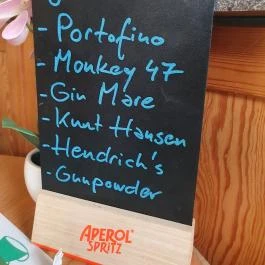 - Portofino
- Monkey 47
- Gin Mare
- Knut Hansen
- Hendrich's
- Gunpowder
APEROL
SPRITZ